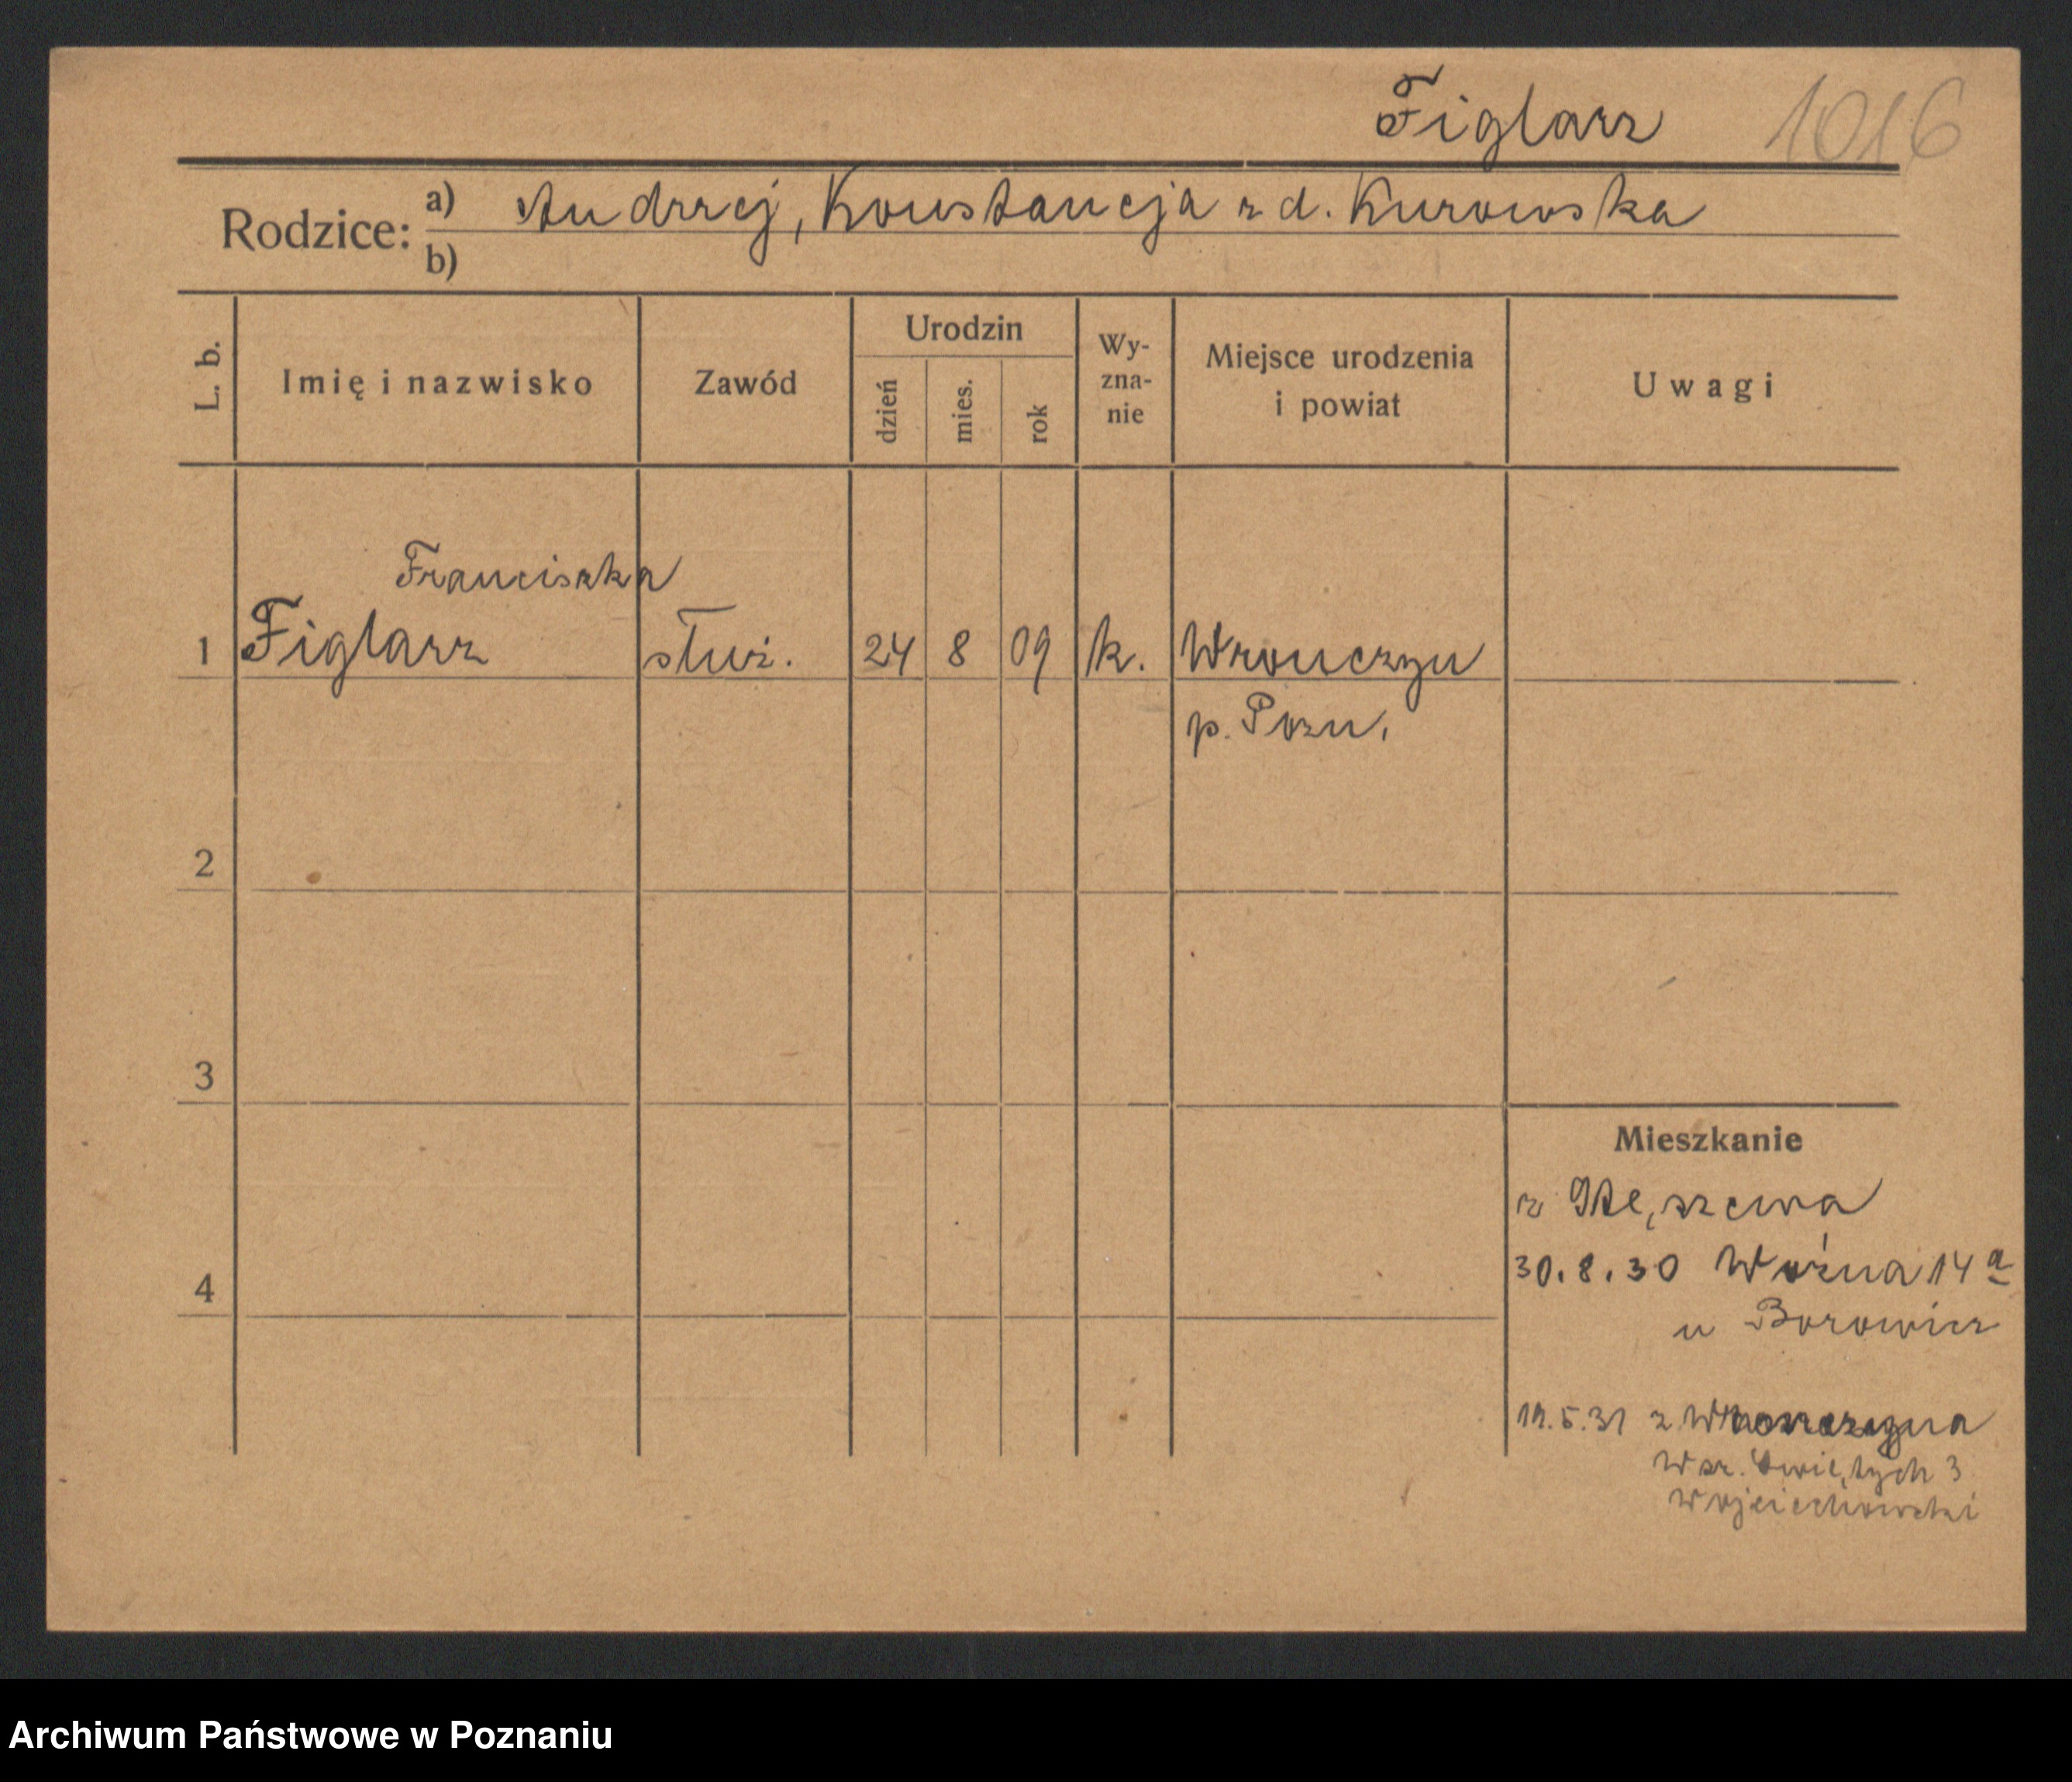 Figlarz 1016
Rodzice: a) Andrzej, Konstancja z d. Kurowska
b)
L. b. Imię i nazwisko Zawód Urodzin dzień mies. rok Wyznanie Miejsce urodzenia i powiat Uwagi
Franciszka
1 Figlarz służ. 24 8 09 k. Wronczyn
p. Pozn.
2
3
Mieszkanie
z
30.8.30 Woźna 14a
4
u Borowicz
19.5.31 z Wronczyna
Wsz. Świętych 3
Wojciechowski
Archiwum Państwowe w Poznaniu